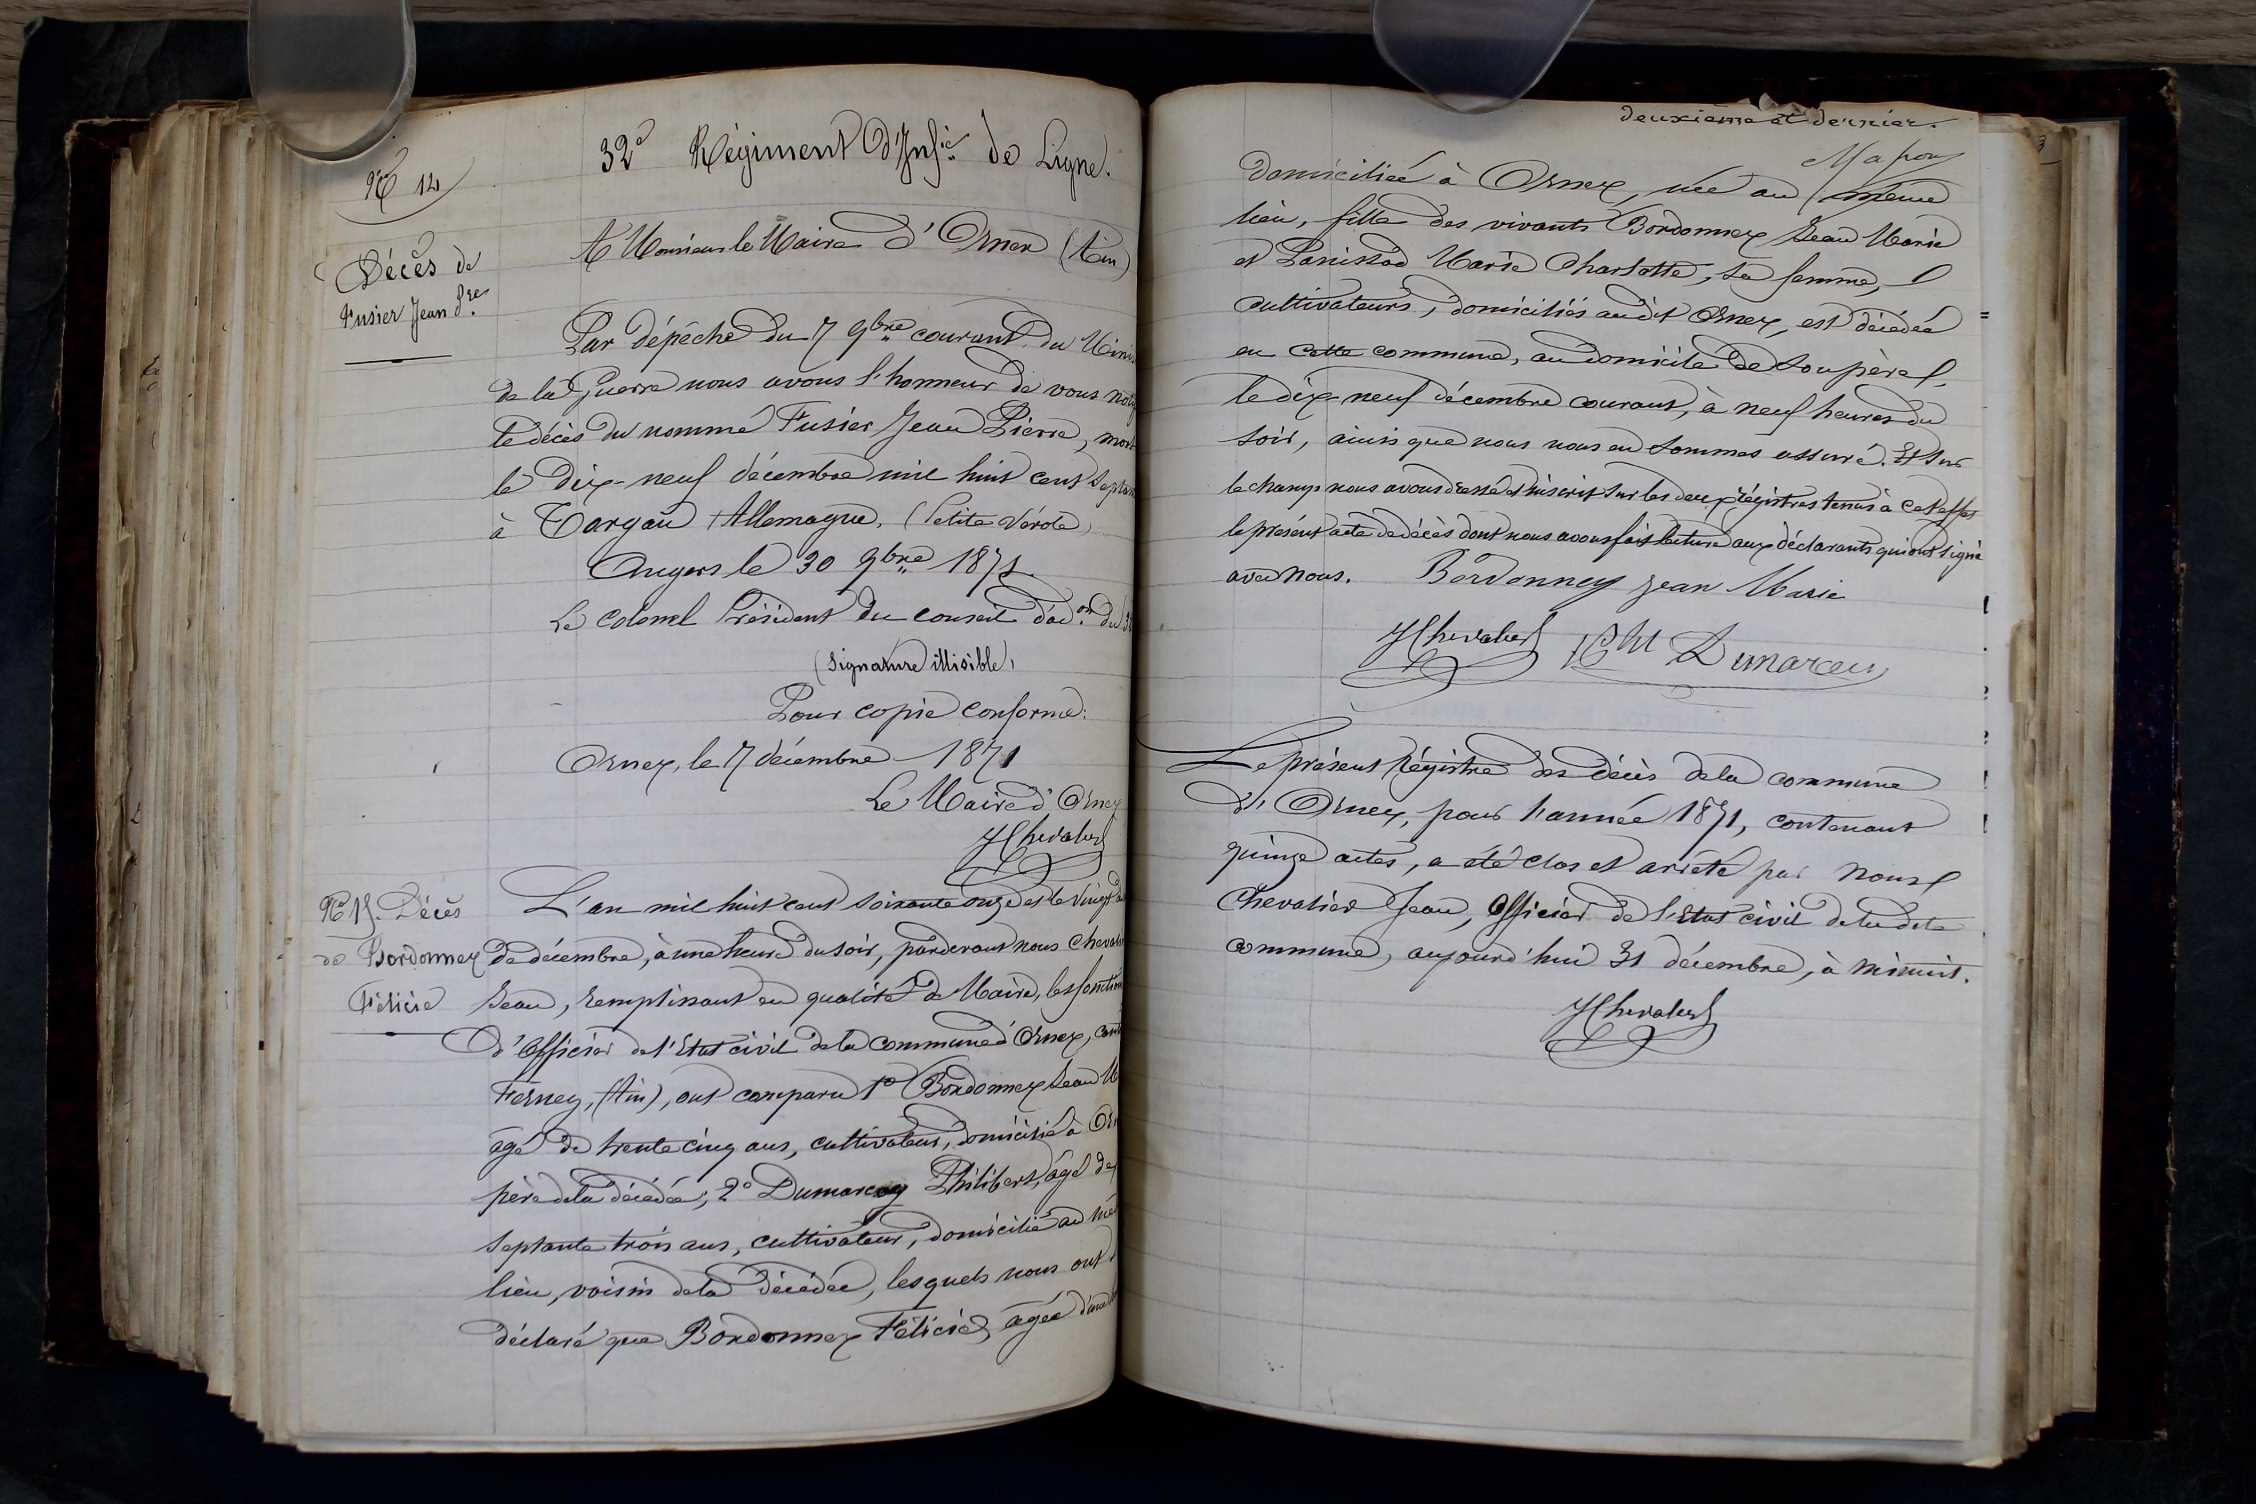 32e Régiment d'Infie de Ligne.
No 14
A Monsieur le Maire d'Ornex (Ain)
Décès de
Fusier Jean Pre
Par dépêche du 7 9bre courant du Minis
de la Guerre nous avons l'honneur de vous noti
le décès du nommé Fusier Jean Pierre, mort
le dix-neuf décembre mil huit cent septan
à Torgau Allemagne. (Petite Vérole)
Angers le 30 9bre 1871.
Le Colonel Président du conseil d'adon du 3
(signature illisible)
Pour copie conforme:
Ornex, le 7 décembre 1871
Le Maire d'Ornex
JChevalier
No 15. Décès
de Bordonnex
Félicie
L'an mil huit cent soixante onze et le vingt
de décembre, à une heure du soir, pardevant nous Chevalier
Jean, remplissant en qualité de Maire, les fonction
d'Officier de l'Etat civil de la commune d'Ornex, cant
Ferney, (Ain), ont comparu 1o Bordonnex Jean M
âgé de trente cinq ans, cultivateur, domicilié à Orn
père de la décédée; 2o Dumarcey Philibert, âgé de
septante trois ans, cultivateur, domicilié au mê
lieu, voisin de la décédée, lesquels nous ont
déclaré que Bordonnex Félicie, âgée d'une
deuxième et dernier.
domiciliée à Ornex, née au même
lieu, fille des vivants Bordonnex Jean Marie
et Panissod Marie Charlotte, sa femme,
cultivateurs, domiciliés au dit Ornex, est décédée
en cette commune, au domicile de son père
le dix-neuf décembre courant, à neuf heures du
soir, ainsi que nous nous en sommes assuré. Et sur
le champ nous avons dressé et inscrit sur les deux régistres tenus à cet effet
le présent acte de décès dont nous avons fait lecture aux déclarants qui ont signé
avec nous. Bordonnex Jean Marie
JChevalier Pht Dumarcey
Le présent Régistre des décès de la commune
d'Ornex, pour l'année 1871, contenant
quinze actes, a été clos et arrêté par nous
Chevalier Jean, Officier de l'Etat civil de la dite
commune, aujourd'hui 31 décembre, à minuit.
JChevalier